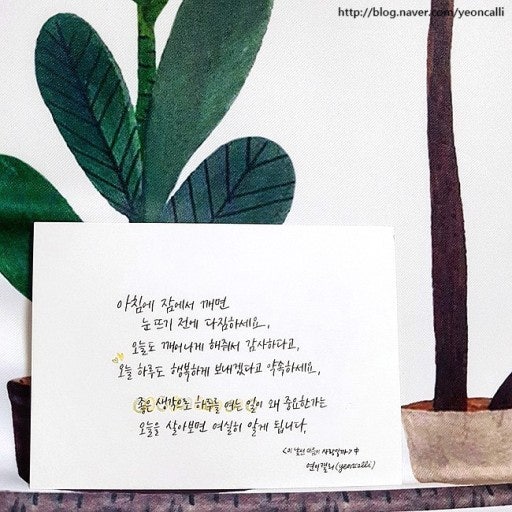 http://blog.naver.com/yeoncalli
아침에 잠에서 깨면
눈 뜨기 전에 다짐하세요,
오늘도 깨어나게 해줘서 감사하다고,
오늘 하루도 행복하게 보내겠다고 약속하세요,
좋은 생각으로 하루를 여는 일이 왜 중요한가는
오늘을 살아보면 여실히 알게 됩니다.
中
(yeoncalli)